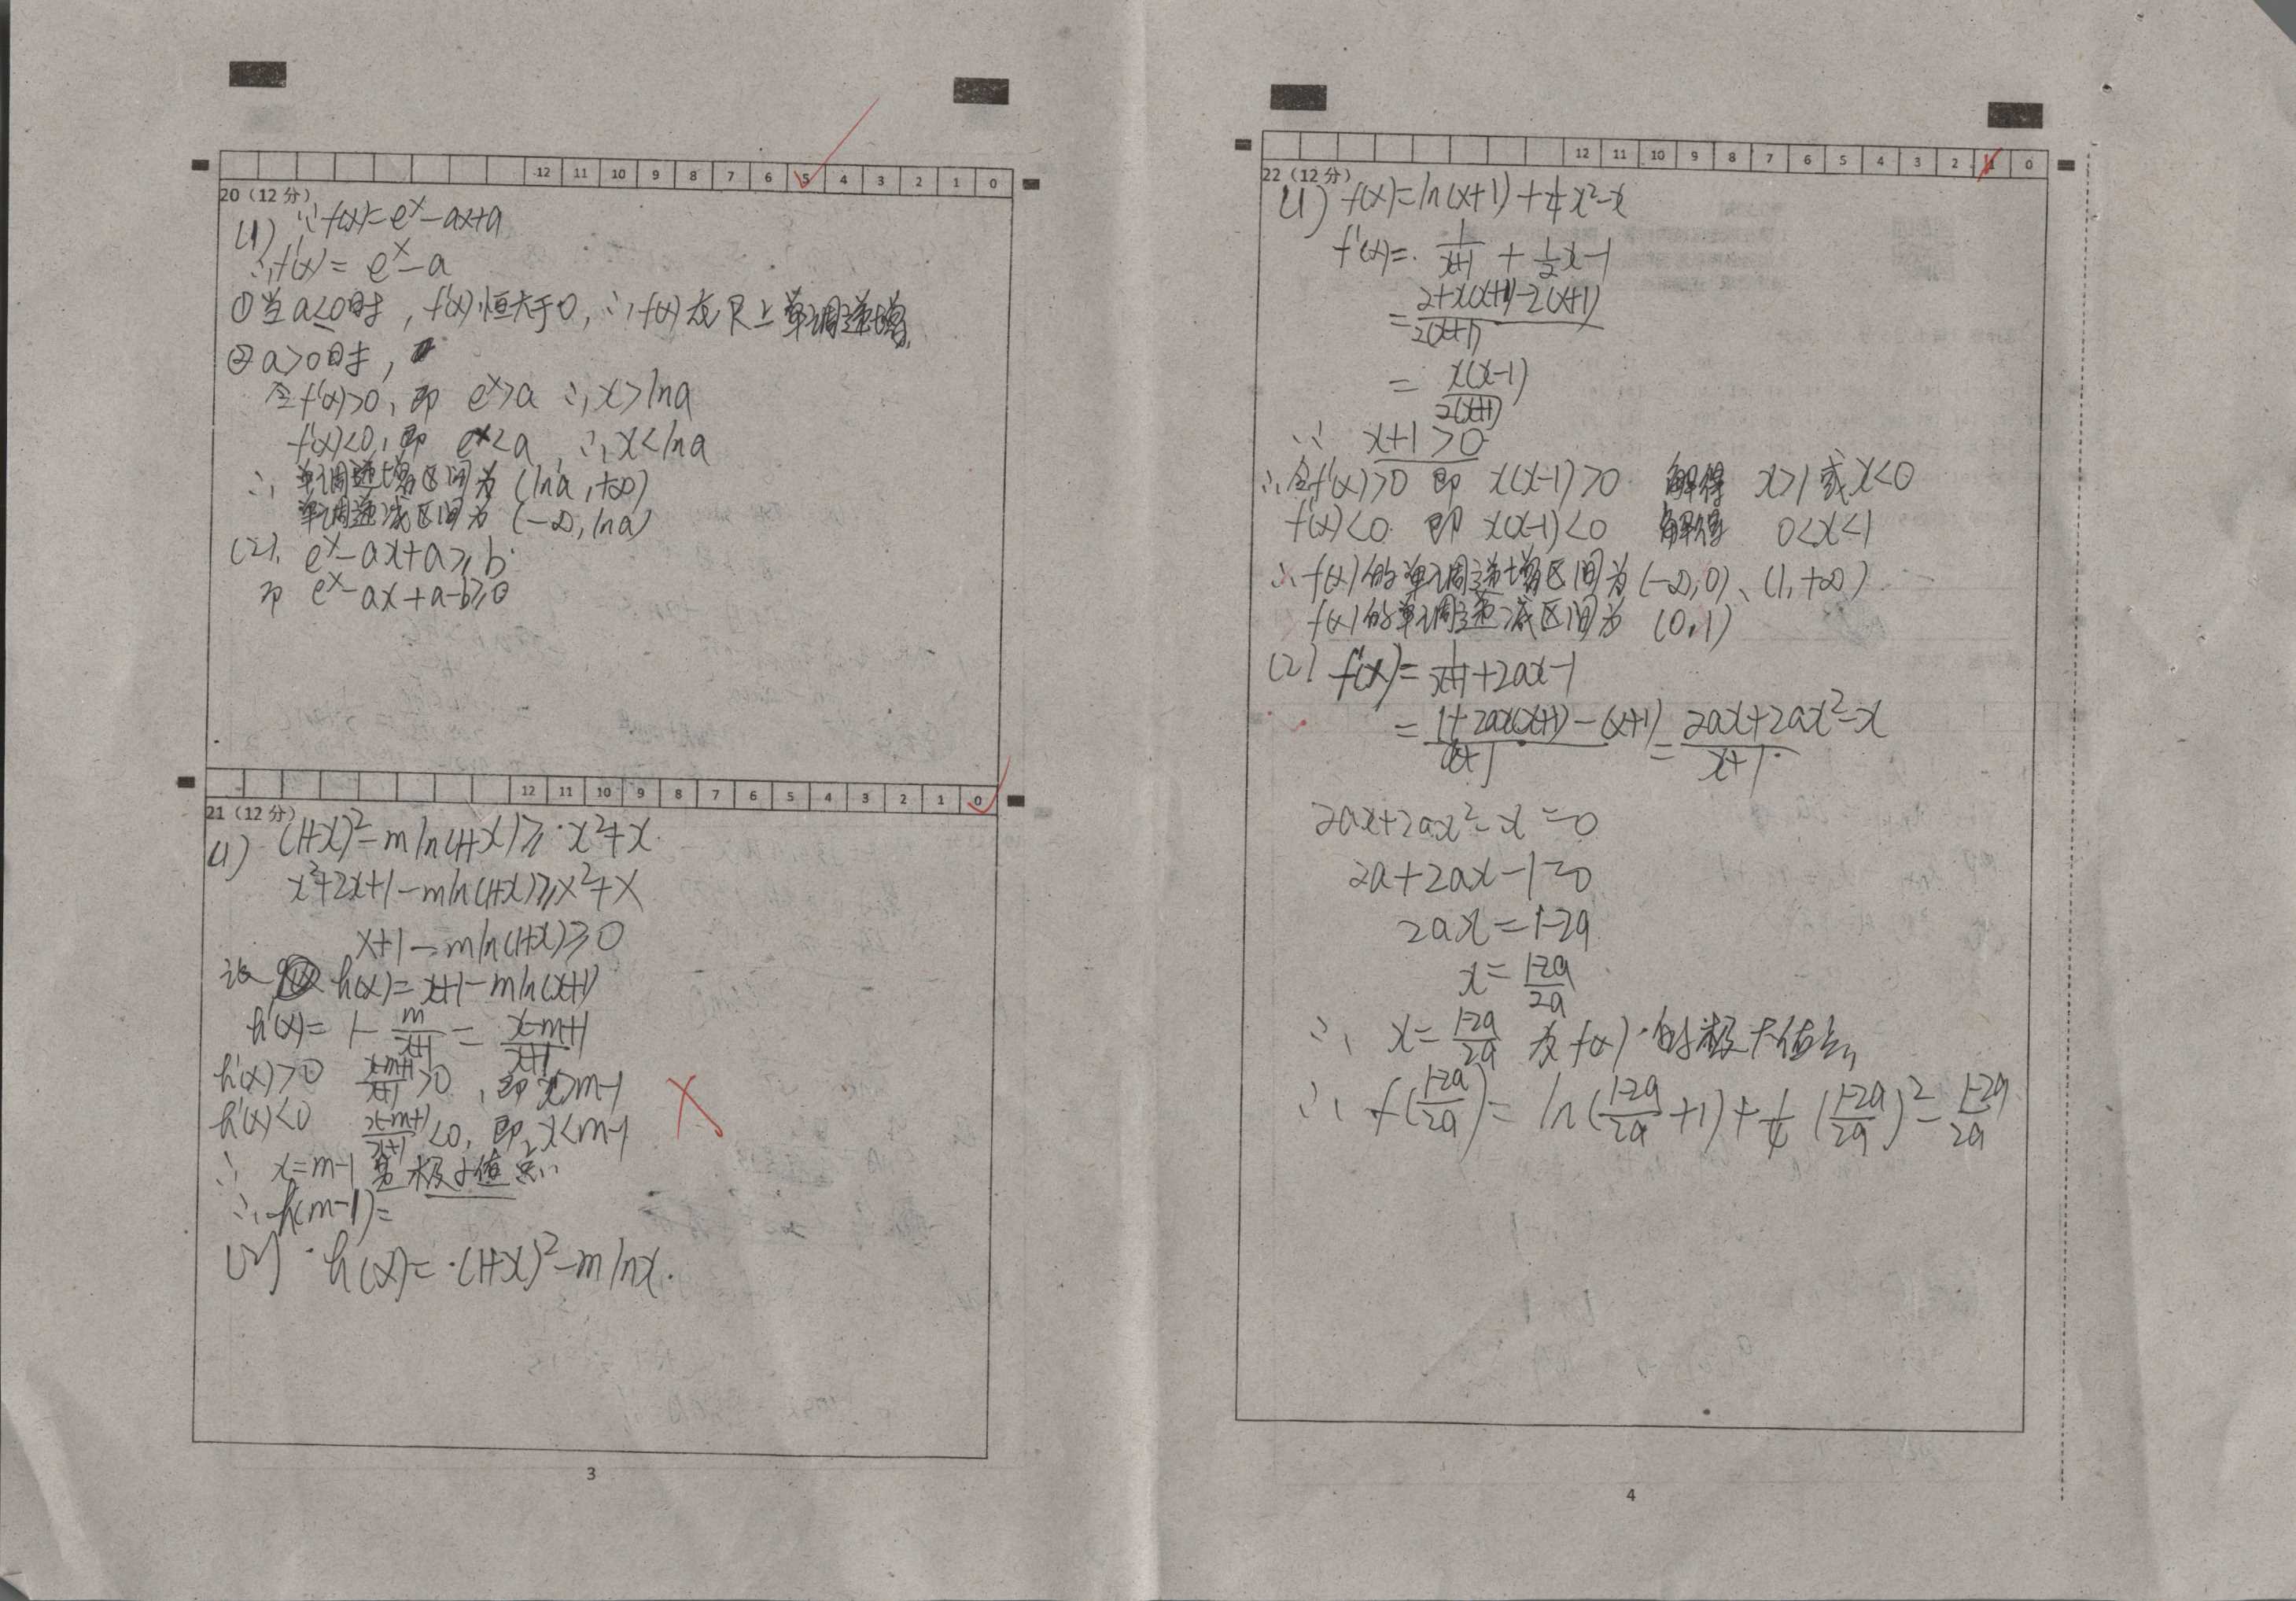 12 11 10 9 8 7 6 5 4 3 2 1 0
20(12分)
(1) ∵f(x)=eˣ-ax+a
∴f'(x)=eˣ-a
①当a≤0时，f'(x)恒大于0，∴f(x)在R上单调递增,
②a>0时，
令f'(x)>0，即 eˣ>a ∴x>lna
f'(x)<0，即 eˣ<a ∴x<lna
∴单调递增区间为(lna,+∞)
单调递减区间为(-∞,lna)
(2). eˣ-ax+a≥b
即 eˣ-ax+a-b≥0
12 11 10 9 8 7 6 5 4 3 2 1 0
21(12分)
(1) (1+x)²-mln(1+x)≥x²+x
x²+2x+1-mln(1+x)≥x²+x
x+1-mln(1+x)≥0
设 h(x)=x+1-mln(x+1)
h'(x)=1-m/(x+1)=(x-m+1)/(x+1)
h'(x)>0 (x-m+1)/(x+1)>0，即x>m-1
h'(x)<0 (x-m+1)/(x+1)<0，即x<m-1
∴ x=m-1为极小值点
∴h(m-1)=
(2) h(x)=(1+x)²-mlnx.
3
12 11 10 9 8 7 6 5 4 3 2 1 0
22(12分)
(1) f(x)=ln(x+1)+¼x²-x
f'(x)=1/(x+1)+½x-1
=(2+x(x+1)-2(x+1))/(2(x+1))
=x(x-1)/(2(x+1))
∵ x+1>0
∴令f'(x)>0 即 x(x-1)>0 解得 x>1或x<0
f'(x)<0 即 x(x-1)<0 解得 0<x<1
∴f(x)的单调递增区间为(-∞,0)、(1,+∞)
f(x)的单调递减区间为(0,1)
(2) f'(x)=1/(x+1)+2ax-1
=(1+2ax(x+1)-(x+1))/(x+1)=(2ax+2ax²-x)/(x+1)
2ax+2ax²-x=0
2a+2ax-1=0
2ax=1-2a
x=(1-2a)/2a
∴ x=(1-2a)/2a 为f(x)的极大值点
∴ f((1-2a)/2a)=ln((1-2a)/2a+1)+¼((1-2a)/2a)²-(1-2a)/2a
4